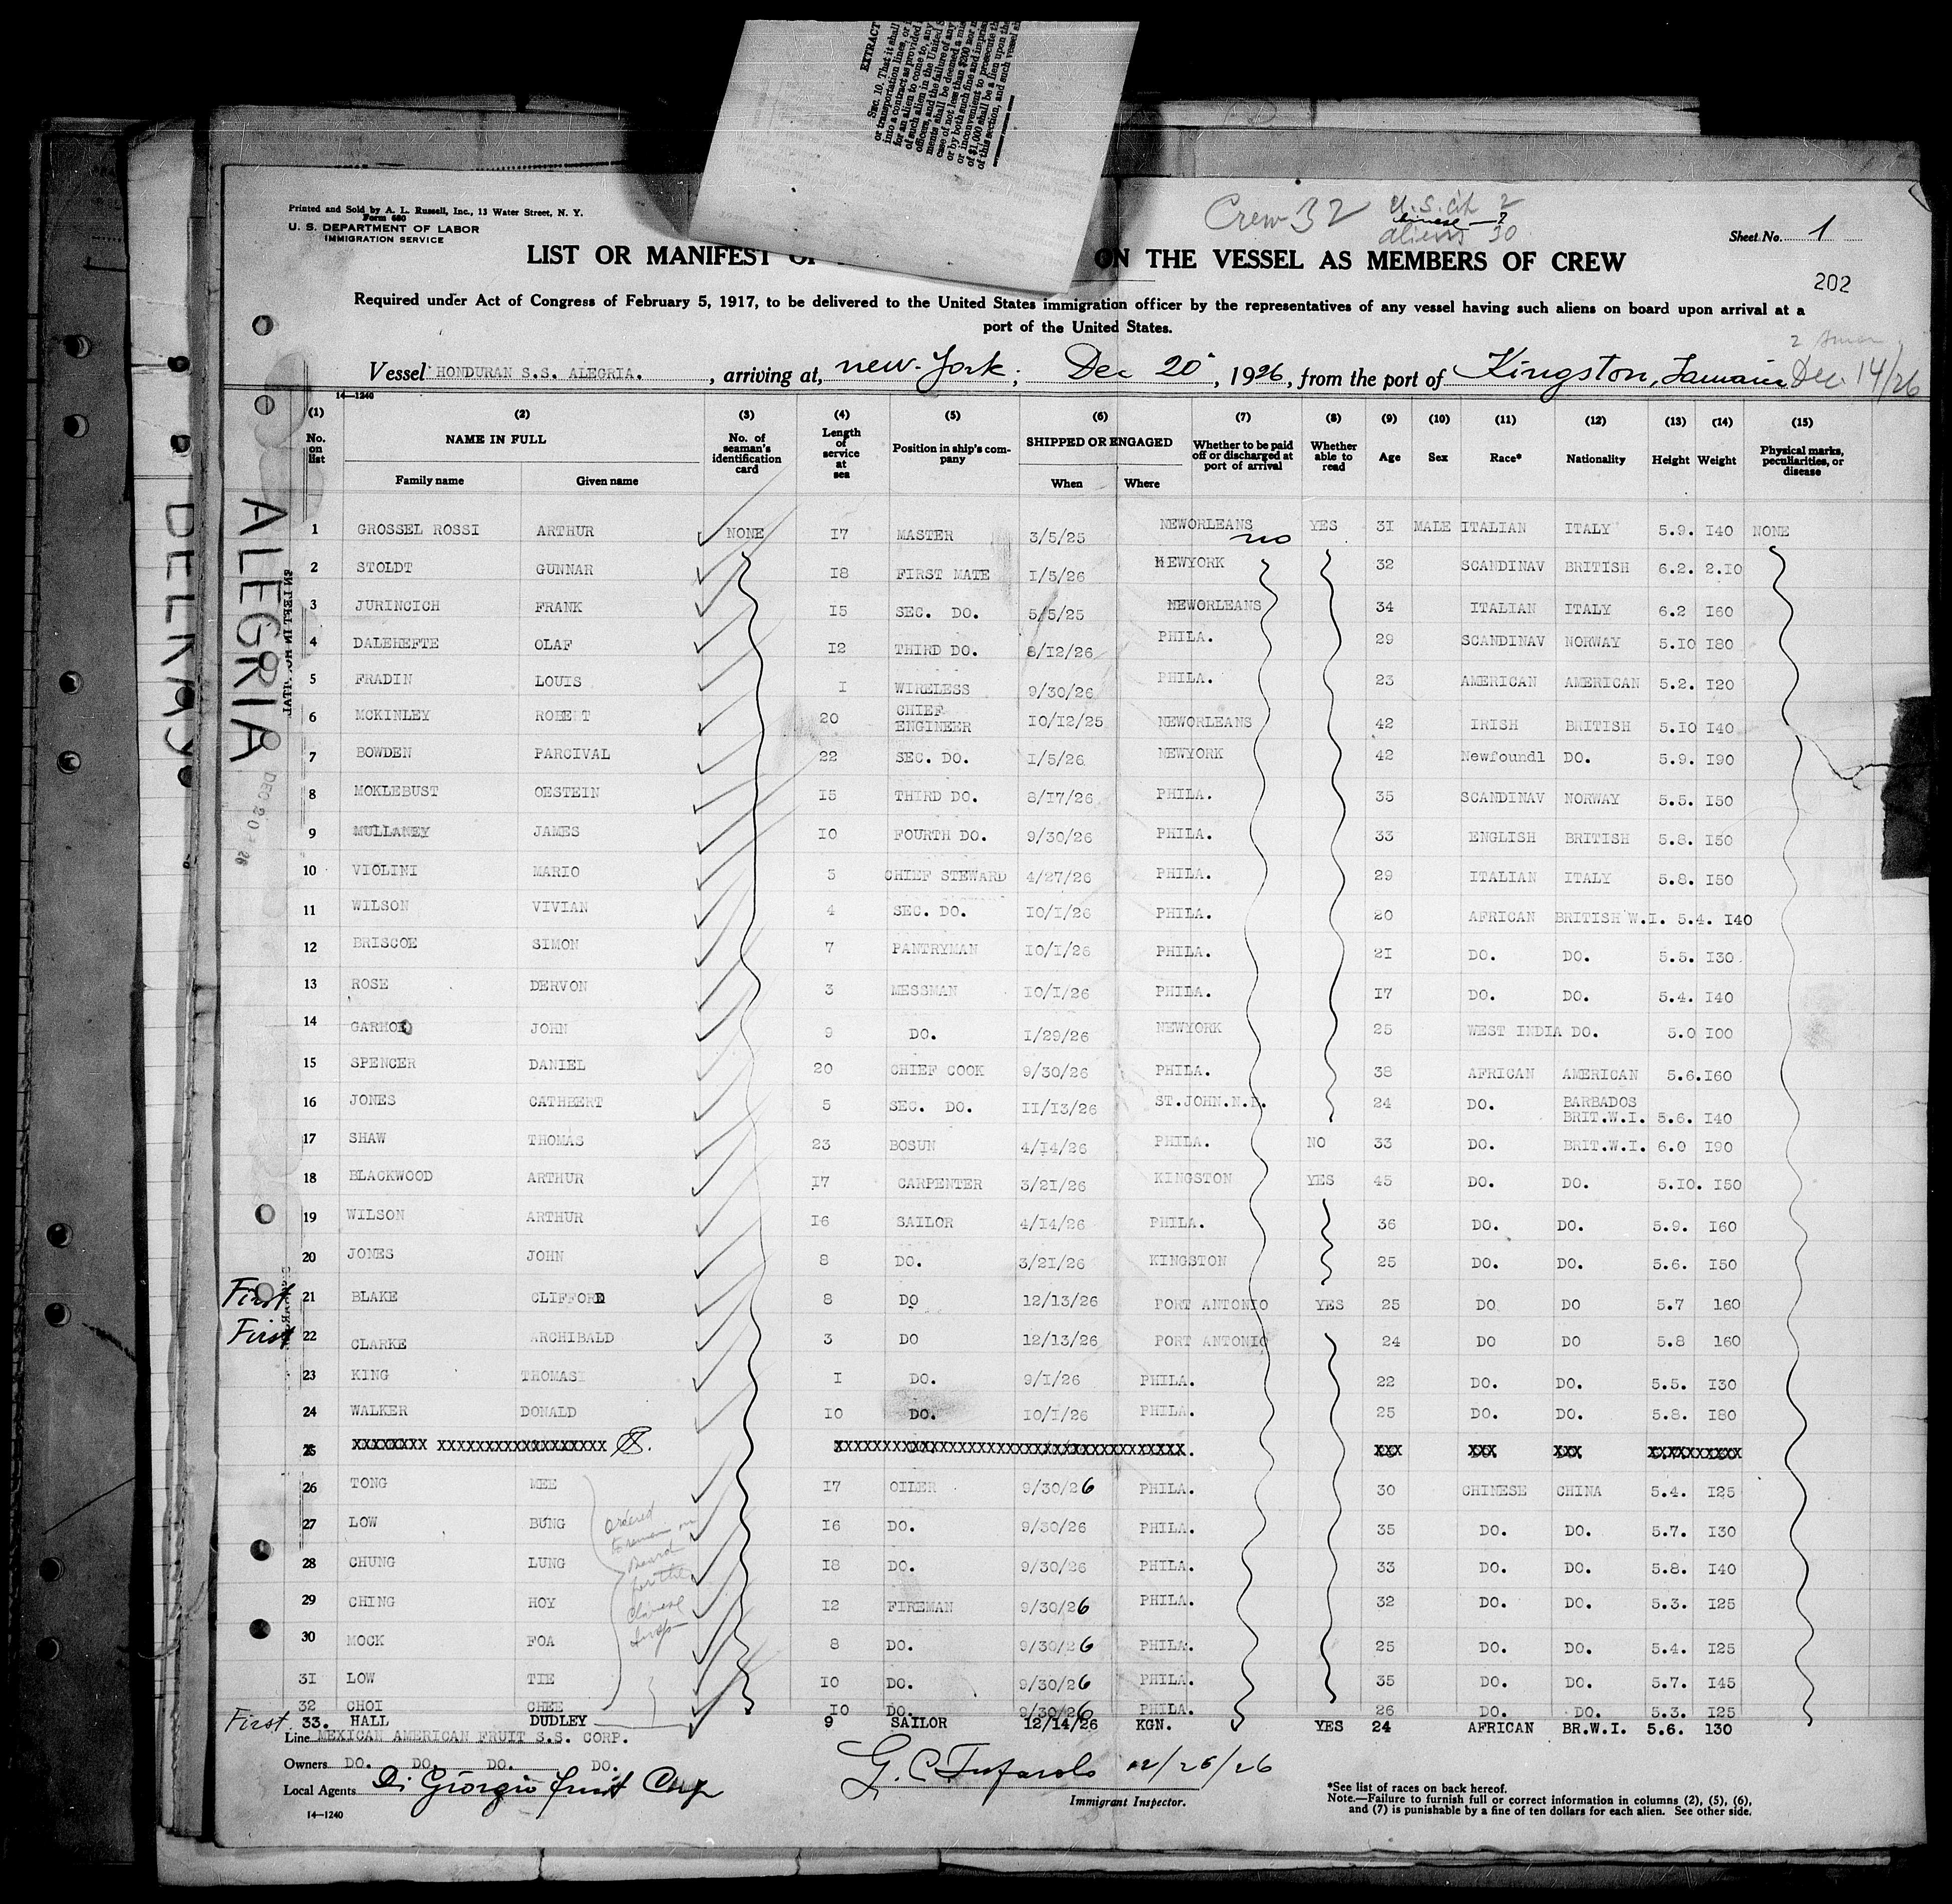 EXTRACT
Sec. 10. That it shall
or transportation lines, or
into a contract as provided
for an alien to come to, any
of such alien in the United S
officers, and the failure of any
ments shall be deemed a mis
case of not less than $200 nor
or by both such fine and impris
or inconvenient to prosecute th
of $1,000 shall be a lien upon the
of this section, and such vessel
Printed and Sold by A. L. Russell, Inc., 13 Water Street, N. Y.
Form 680
U. S. DEPARTMENT OF LABOR
IMMIGRATION SERVICE
Crew 32
U.S. cit 2
Chinese — 7
aliens 30
Sheet No. 1
LIST OR MANIFEST OF ON THE VESSEL AS MEMBERS OF CREW
202
Required under Act of Congress of February 5, 1917, to be delivered to the United States immigration officer by the representatives of any vessel having such aliens on board upon arrival at a
port of the United States.
Vessel HONDURAN S.S. ALEGRIA. , arriving at, new-York, Dec 20, 1926, from the port of Kingston, Jamaica Dec. 14/26
14—1240
(1) (2) (3) (4) (5) (6) (7) (8) (9) (10) (11) (12) (13) (14) (15)
No. on list NAME IN FULL No. of seaman's identification card Length of service at sea Position in ship's company SHIPPED OR ENGAGED Whether to be paid off or discharged at port of arrival Whether able to read Age Sex Race* Nationality Height Weight Physical marks, peculiarities, or disease
Family name Given name When Where
1 GROSSEL ROSSI ARTHUR NONE 17 MASTER 3/5/25 NEWORLEANS no YES 31 MALE ITALIAN ITALY 5.9. 140 NONE
2 STOLDT GUNNAR 18 FIRST MATE 1/5/26 NEWYORK 32 SCANDINAV BRITISH 6.2. 2.10
3 JURINCICH FRANK 15 SEC. DO. 5/5/25 NEWORLEANS 34 ITALIAN ITALY 6.2 160
4 DALEHEFTE OLAF 12 THIRD DO. 8/12/26 PHILA. 29 SCANDINAV NORWAY 5.10 180
5 FRADIN LOUIS 1 WIRELESS 9/30/26 PHILA. 23 AMERICAN AMERICAN 5.2. 120
6 MCKINLEY ROBERT 20 CHIEF ENGINEER 10/12/25 NEWORLEANS 42 IRISH BRITISH 5.10 140
7 BOWDEN PARCIVAL 22 SEC. DO. 1/5/26 NEWYORK 42 Newfoundl DO. 5.9. 190
8 MOKLEBUST OESTEIN 15 THIRD DO. 8/17/26 PHILA. 35 SCANDINAV NORWAY 5.5. 150
9 MULLANEY JAMES 10 FOURTH DO. 9/30/26 PHILA. 33 ENGLISH BRITISH 5.8. 150
10 VIOLINI MARIO 3 CHIEF STEWARD 4/27/26 PHILA. 29 ITALIAN ITALY 5.8. 150
11 WILSON VIVIAN 4 SEC. DO. 10/1/26 PHILA. 20 AFRICAN BRITISH W.I. 5.4. 140
12 BRISCOE SIMON 7 PANTRYMAN 10/1/26 PHILA. 21 DO. DO. 5.5. 130
13 ROSE DERVON 3 MESSMAN 10/1/26 PHILA. 17 DO. DO. 5.4. 140
14 JOHN 9 DO. 1/29/26 NEWYORK 25 WEST INDIA DO. 5.0 100
15 SPENCER DANIEL 20 CHIEF COOK 9/30/26 PHILA. 38 AFRICAN AMERICAN 5.6. 160
16 JONES CATHBERT 5 SEC. DO. 11/13/26 ST.JOHN.N.B. 24 DO. BARBADOS BRIT.W.I. 5.6. 140
17 SHAW THOMAS 23 BOSUN 4/14/26 PHILA. NO 33 DO. BRIT.W.I. 6.0 190
18 BLACKWOOD ARTHUR 17 CARPENTER 3/21/26 KINGSTON YES 45 DO. DO. 5.10. 150
19 WILSON ARTHUR 16 SAILOR 4/14/26 PHILA. 36 DO. DO. 5.9. 160
20 JONES JOHN 8 DO. 3/21/26 KINGSTON 25 DO. DO. 5.6. 150
First 21 BLAKE CLIFFORD 8 DO 12/13/26 PORT ANTONIO YES 25 DO DO 5.7 160
First 22 CLARKE ARCHIBALD 3 DO 12/13/26 PORT ANTONIO 24 DO DO 5.8 160
23 KING THOMAS 1 DO. 9/1/26 PHILA. 22 DO. DO. 5.5. 130
24 WALKER DONALD 10 DO. 10/1/26 PHILA. 25 DO. DO. 5.8. 180
25 XXXXXXXX XXXXXXXXXXXXXXXXXX XXXXXXXXXXXXXXXXXXXXXXXXXXXXXXXXXXXX. XXX XXX XXX XXXXXXXXXX
26 TONG MEE 17 OILER 9/30/26 PHILA. 30 CHINESE CHINA 5.4. 125
27 LOW BUNG 16 DO. 9/30/26 PHILA. 35 DO. DO. 5.7. 130
28 CHUNG LUNG 18 DO. 9/30/26 PHILA. 33 DO. DO. 5.8. 140
29 CHING HOY 12 FIREMAN 9/30/26 PHILA. 32 DO. DO. 5.3. 125
30 MOCK FOA 8 DO. 9/30/26 PHILA. 25 DO. DO. 5.4. 125
31 LOW TIE 10 DO. 9/30/26 PHILA. 35 DO. DO. 5.7. 145
32 CHOI CHEE 10 DO. 9/30/26 PHILA. 26 DO. DO. 5.3. 125
First 33. HALL DUDLEY 9 SAILOR 12/14/26 KGN. YES 24 AFRICAN BR.W.I. 5.6. 130
ordered
to remain on
board
for the
Chinese
Insp
Line MEXICAN AMERICAN FRUIT S.S. CORP.
Owners DO. DO. DO. DO.
Local Agents Di Giorgio Fruit Corp
12/26/26
Immigrant Inspector.
14—1240
*See list of races on back hereof.
Note.—Failure to furnish full or correct information in columns (2), (5), (6),
and (7) is punishable by a fine of ten dollars for each alien. See other side.
ALEGRIA
DEC 20 1926